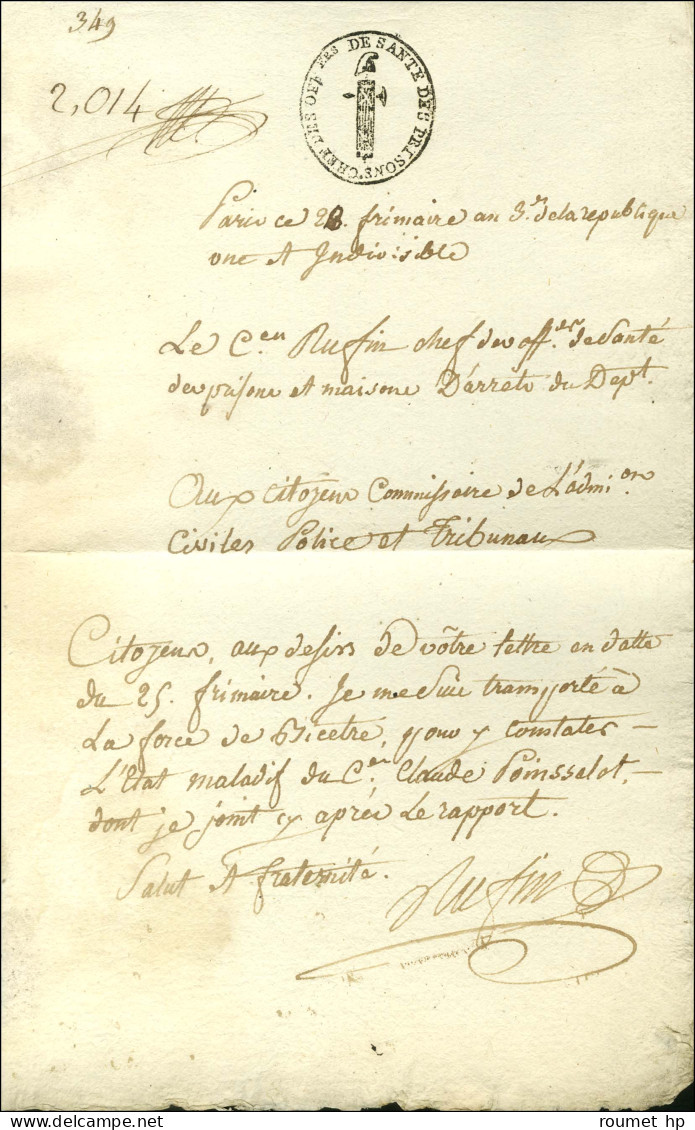 349
2,014
CHEF DES OFF.ERS DE SANTE DES PRISONS
Paris ce 28. frimaire an 3.e de la republique
une et Indivisible
Le C.en Rufin chef des off.ers de Santé
des prisons et maisons D'arrets du Dept.
Aux citoyens Commissaire de L'admi.on
Civiles Police et Tribunaux
Citoyens, aux desirs de vôtre lettre en datte
du 25. frimaire. Je me suis transporté à
La force de Bicetre, pour y constater
L'Etat maladif du C.en Claude Poinsselot,
dont je joint cy après Le rapport.
Salut et fraternité.
Rufin
roumet hp